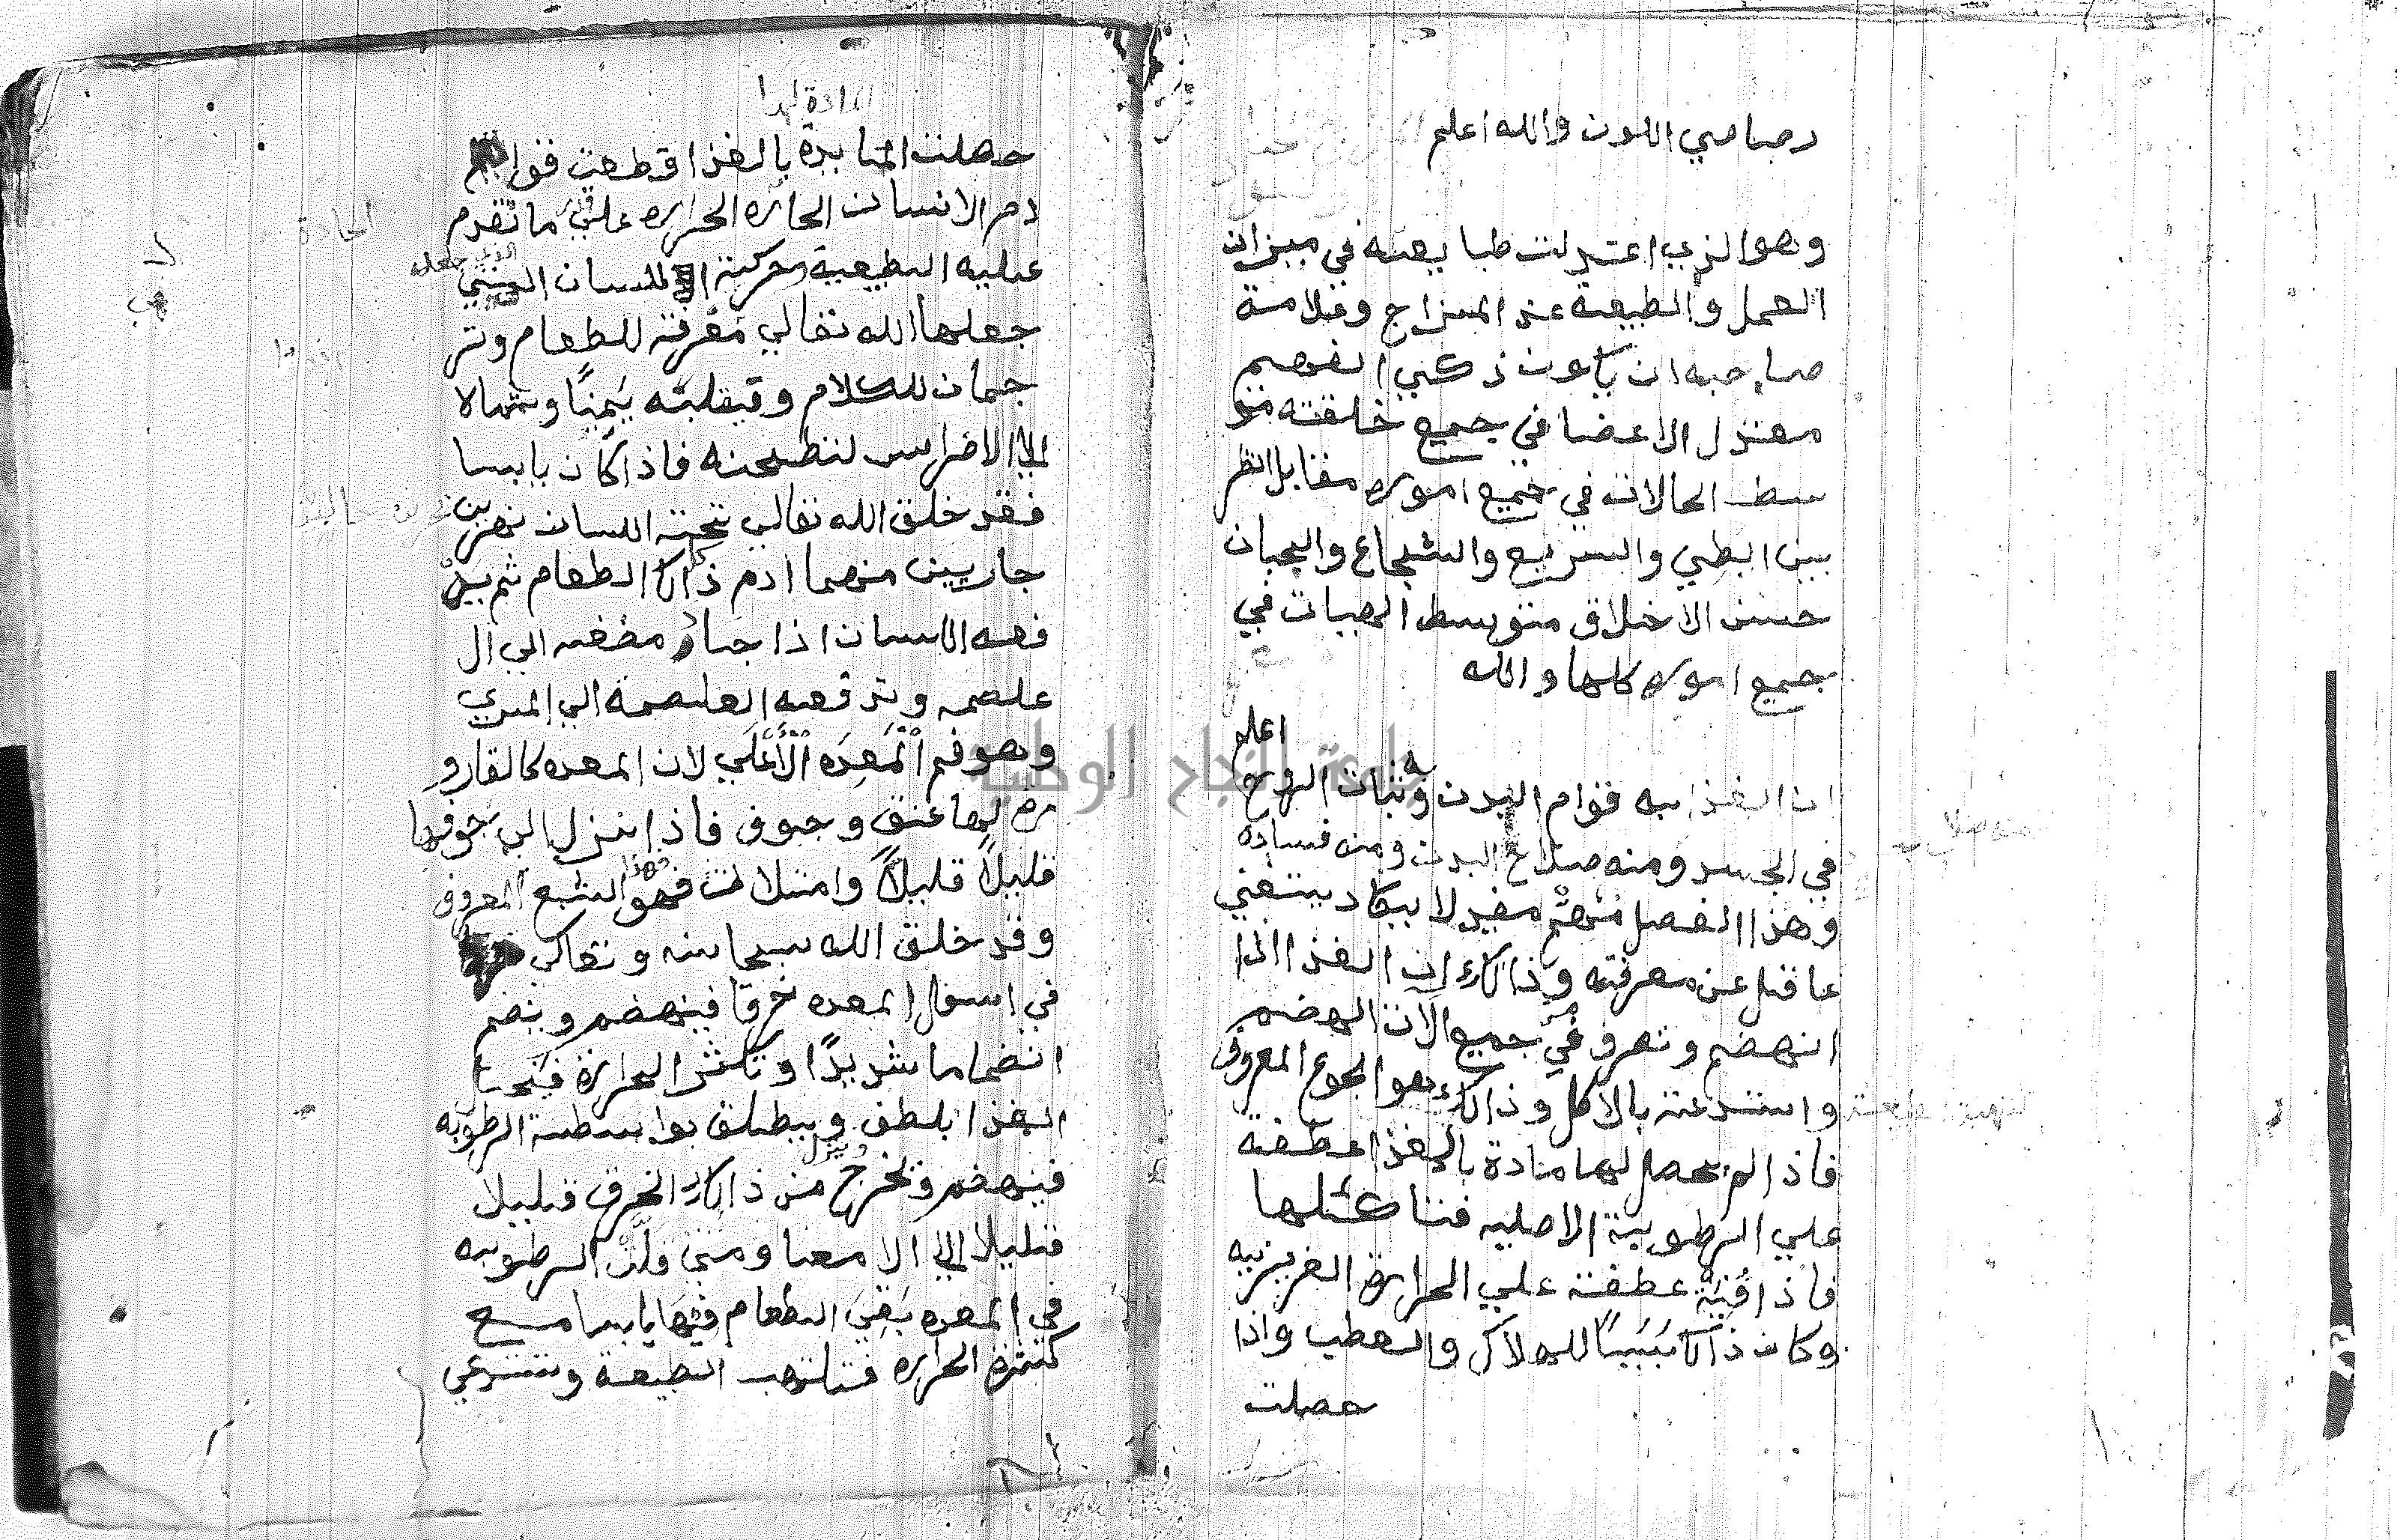 رصاصي اللون والله اعلم
وهو الذي اعتدلت طبايعه في ميزان
العمل والطبيعة عند المزاج وعلامة
صاحبه ان يكون ذكي الفهم
معتدل الاعضا في جميع خلقته متو
سط الحالات في جميع اموره مقابل النظر
بين البطي والسريع والشجاع والجبان
حسن الاخلاق متوسط الهبات في
جميع اموره كلها والله
اعلم
ان الغذا به قوام البدن وبه ثبات الروح
في الجسد ومنه صلاح البدن ومنه فساده
وهذا الفصل مهم مفيد لا يكاد يستغني
عاقل عن معرفته وذالك ان الغذا اذا
انهضم وتعرق في جميع الات الهضم
واستدعت بالاكل وذالك هو الجوع المعروف
فاذا لم يحصل لها مادة بالغذا عطفت
علي الرطوبة الاصلية فتاكلها
فاذا فنية عطفت علي الحرارة الغريزيه
وكان ذالك سببا للهلاك والعطب واذا
حصلت
حصلت المبابدة بالغذا قطعت
دم الانسان الحاره الحراره علي ما تقدم
عليه الطبيعية وحركية اللسان
الذي جعله
جعلها الله تعالي مغرفة للطعام وتر
جمان للكلام وتقلبه يمينا وشمالا
الي الاضراس لتطحنه فاذا كان يابسا
فقد خلق الله تعالي تحت اللسان نهرين
جاريين منهما ادم ذالك الطعام ثم يد
فعه اللسان اذا جاد مضغه الي ال
غلصمه وتدفعه الغلصمة الي المري
وهو فم المعده الاعلي لان المعده كالقارو
رة لها عنق وجوف فاذا نزل الي جوفها
قليلا قليلا وامتلات فهو الشبع المعروف
وقد خلق الله سبحانه وتعالي
في اسفل المعده خرقا فينهضم وينضم
انضماما شديدا وتكثر الحرارة
الغذا بلطف وينطلق بواسطة الرطوبه
وينزل
فينهضم وتخرج من ذالك الخرق قليلا
قليلا الي الامعا ومتي قلت الرطوبه
في المعده بقي الطعام فيها يابسا مع
كثرة الحراره فتلتهب الطبيعة وتستدعي
جامعة النجاح الوطنية